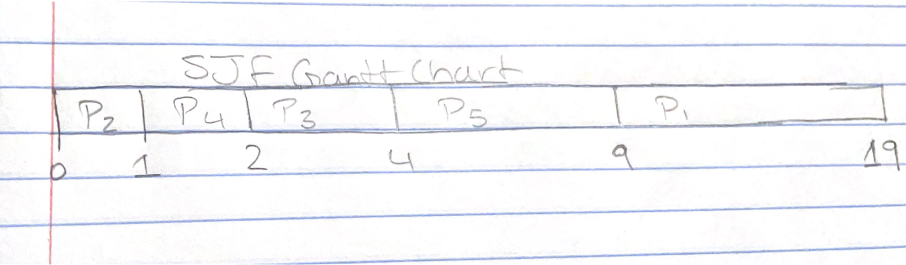 SJF Gantt Chart
P2 P4 P3 P5 P1
0 1 2 4 9 19